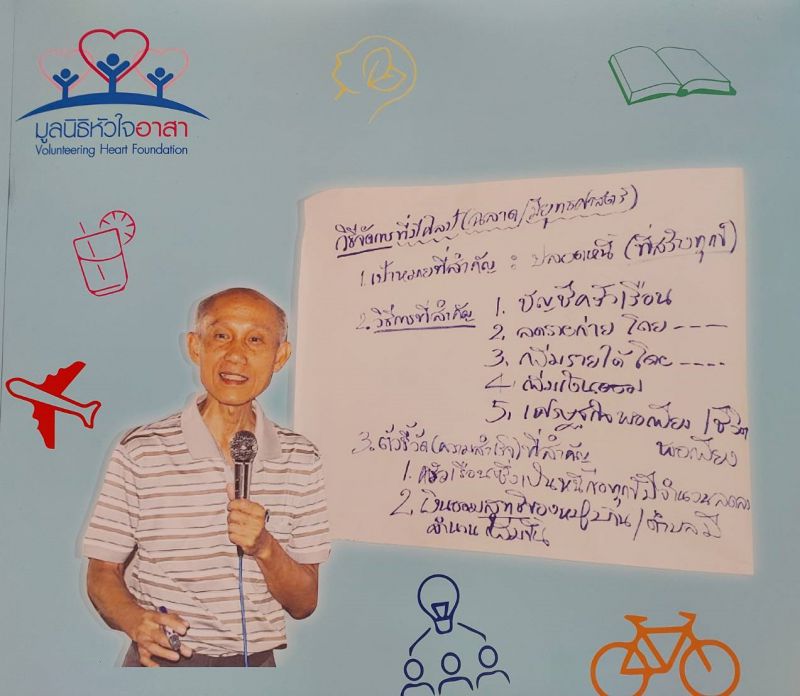 มูลนิธิหัวใจอาสา
Volunteering Heart Foundation
วิธีจัดการที่มีศิลป์ (ฉลาด/มียุทธศาสตร์)
1. เป้าหมายที่สำคัญ : ปลดหนี้
2. วิธีการที่สำคัญ
1. บัญชีครัวเรือน
2. ลดรายจ่าย โดย ----
3. เพิ่มรายได้ โดย ----
4.
5. เศรษฐกิจพอเพียง / ชีวิต
พอเพียง
3. ตัวชี้วัด (ความสำเร็จ) ที่สำคัญ
1. ครัวเรือนซึ่งเป็นหนี้ มีจำนวนลดลง
2. เงินออมสุทธิของหมู่บ้าน / ตำบลมี
จำนวนเพิ่มขึ้น